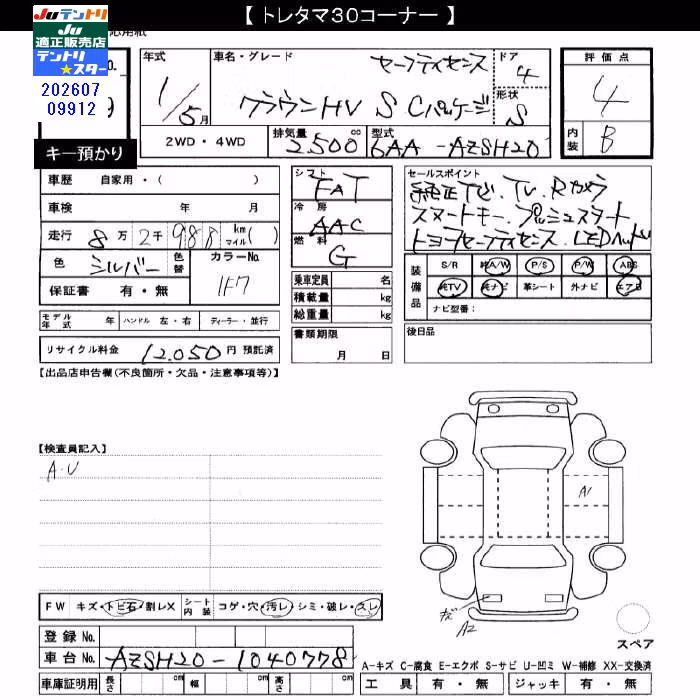 【 トレタマ30コーナー 】
Juテントリ
Ju
適正販売店
テントリ
★スター
応用紙
No.
202607
09912
キー預かり
年式
1/5月
車名・グレード
セーフティセンス
クラウンHV S Cパッケージ
ドア
4
形状
S
評価点
4
内装
B
2WD・4WD
排気量
2,500cc
型式
6AA-AZSH20
車歴 自家用・( )
車検 年 月
走行 8万2千988 km マイル( )
色 シルバー 色替
カラーNo.
1F7
保証書 有・無
シフト
FAT
冷房
AAC
燃料
G
乗車定員 名
積載量 kg
総重量 kg
セールスポイント
純正ナビ.TV.Rカメラ
スマートキー.プッシュスタート
トヨタセーフティセンス.LEDヘッド
装備品
S/R 純A/W P/S P/W ABS
純TV 純ナビ 革シート 外ナビ エアB
ナビ型番:
モデル年式 年 ハンドル 左・右 ディーラー・並行
書類期限
月 日
後日品
リサイクル料金 12,050円 預託済
【出品店申告欄(不良箇所・欠品・注意事項等)】
【検査員記入】
A.U
A1
A2
FW キズ・トビ石・割レX
シート内装 コゲ・穴・汚レ・シミ・破レ・スレ
登録No.
車台No. AZSH20-1040778
車庫証明用 長さ cm 幅 cm 高さ cm
スペア
A-キズ C-腐食 E-エクボ S-サビ U-凹ミ W-補修 XX-交換済
工具 有・無 ジャッキ 有・無